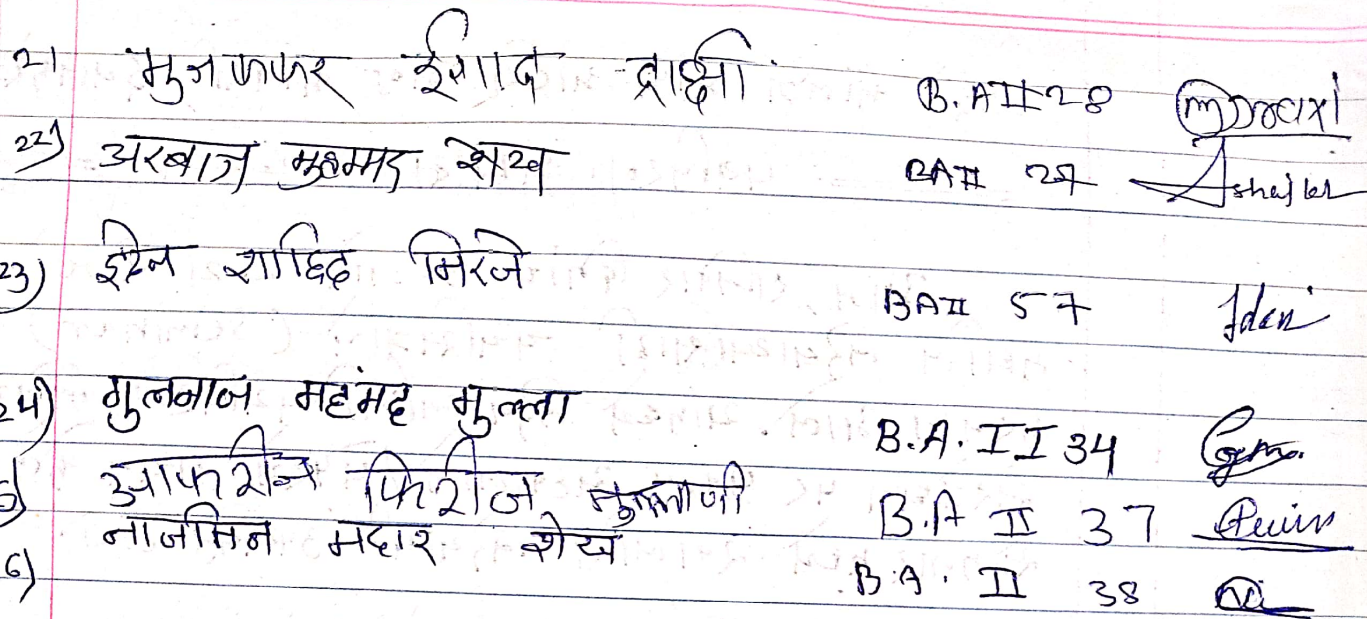 21 मुजफफर ईर्शाद द्राक्षी B.A II 28
22) अरबाज मुहम्मद शेख BA II 27 Ashaikh
23) शाहिद मिरजे BA II 57
24) गुलनाज महंमद मुल्ला B.A. II 34
आफरीन फिरोज B.A II 37
6) नाजमिन मदार शेख B.A. II 38